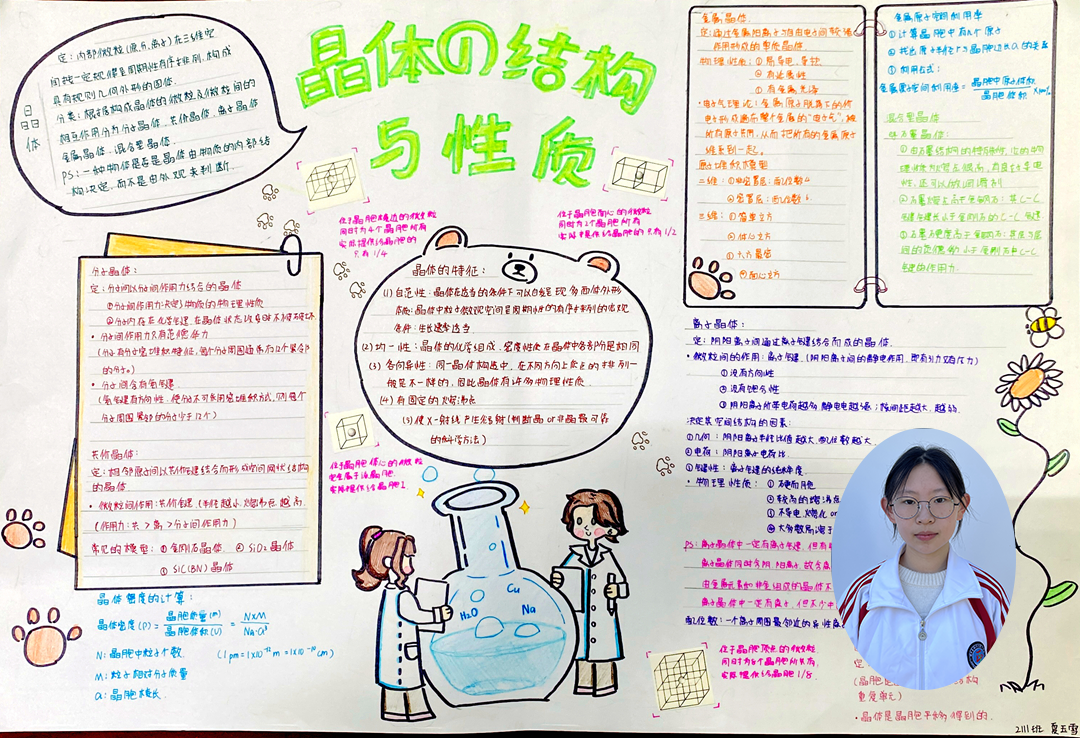 晶体の结构
与性质
晶体
定:内部微粒(原.分.离子)在三维空
间按一定规律呈周期性有序排列,构成
具有规则几何外形的固体.
分类:根据构成晶体的微粒及微粒间的
相互作用分为分子晶体、共价晶体、离子晶体
金属晶体、混合型晶体.
PS:一种物体是否是晶体由物质的内部结
构决定,而不是由外观来判断.
位于晶胞棱边的微粒
同时为4个晶胞所有
实际提供给晶胞的
只有1/4
位于晶胞面心的微粒
同时为2个晶胞所有
实际提供给晶胞的只有1/2
分子晶体:
定:分子间以分子间作用力结合的晶体
①分子间作用力决定物质的物理性质
②分子内存在化学键,在晶体状态改变时不被破坏
·分子间作用力只有范德华力
(分子有分子密堆积特征,每个分子周围通常有12个紧邻
的分子.)
·分子间含有氢键
(氢键有方向性,使分子不可采用密堆积方式,则每个
分子周围紧邻的分子少于12个)
共价晶体:
定:相邻原子间以共价键结合而形成空间网状结构
的晶体
·微粒间作用:共价键(半径越小,熔沸点越高.
(作用力:共>离>分子间作用力)
常见的模型:①金刚石晶体. ②SiO₂晶体
③SiC(BN)晶体
晶体密度的计算:
晶体密度(ρ)=晶胞质量(m)/晶胞体积(V)=N×M/NA·a³
N:晶胞中粒子个数. (1pm=1×10⁻¹²m=1×10⁻¹⁰cm)
M:粒子相对分子质量
a:晶胞棱长.
晶体的特征:
(1)自范性:晶体在适当的条件下可以自发呈现多面体外形
本质:晶体中粒子微观空间呈周期性的有序排列的宏观
条件:生长速率适当
(2)均一性:晶体的化学组成、密度性质在晶体中各部分是相同
(3)各向异性:同一晶体构造中,在不同方向上质点的排列一
般是不一样的,因此晶体有许多物理性质.
(4)有固定的熔沸点
(5)使X-射线产生衍射(判断晶or非晶最可靠
的科学方法)
位于晶胞体心的微粒
完全属于该晶胞
实际提供给晶胞1
H₂O
Cu
Na
金属晶体.
定:通过金属阳离子与自由电子间较强
作用形成的单质晶体
物理性质:①易导电、导热
②有延展性
③有金属光泽
·电子气理论:金属原子脱落下的价
电子形成遍布整个金属的"电子气",被
所有原子共用,从而把所有的金属原子
维系到一起.
原子堆积模型
二维:①非密置层:配位数4
②密置层:配位数6
三维:①简单立方
②体心立方
③六方最密
④面心立方
金属原子空间利用率
①计算晶胞中有几个原子
②找出原子半径r与晶胞边长a的关系
③利用公式:
金属原子空间利用率=晶胞中原子体积/晶胞体积×100%
混合型晶体
以石墨晶体:
离子晶体:
定:阴阳离子间通过离子键结合而成的晶体.
·微粒间的作用:离子键.(阴阳离子间的静电作用,即有引力又有斥力)
①没有方向性
②没有饱合性
③阴阳离子所带电荷越多静电电越强;核间距越大,越弱.
决定其空间结构的因素:
①几何:阴阳离子半径比值越大,配位数越大
②电荷:阴阳离子电荷比.
③键性:离子键的纯粹度
·物理性质:①硬而脆
②较高的熔沸点
③不导电,熔化or
④大多数易溶于
PS:离子晶体中一定有离子键,但有
离子晶体同时含阴、阳离子,故含
由金属元素和非金组成的晶体不
离子晶体中一定有离子,但不
配位数:一个离子周围最邻近的异性
位于晶胞顶点的微粒
同时为8个晶胞所共有,
实际提供给晶胞1/8.
定
重复单元)
·晶体是晶胞平移得到的.
2111班 夏五雪